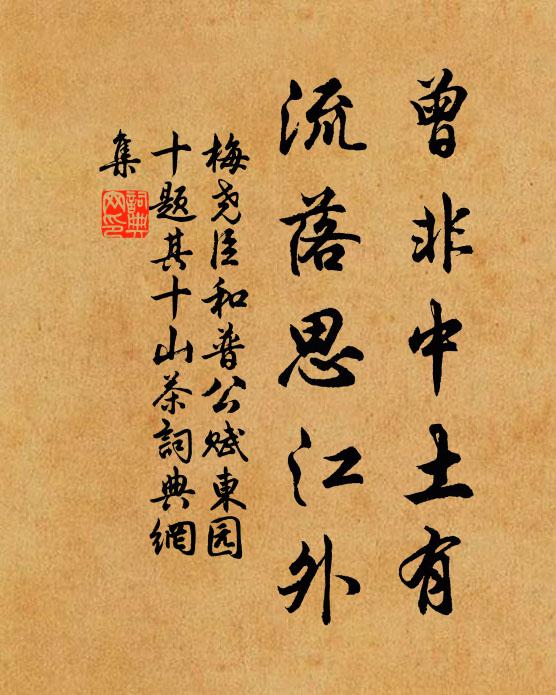 曾非中土有
流落思江外
梅尧臣和普公赋東园
十题其十山茶詞典網
集
詞典
网印